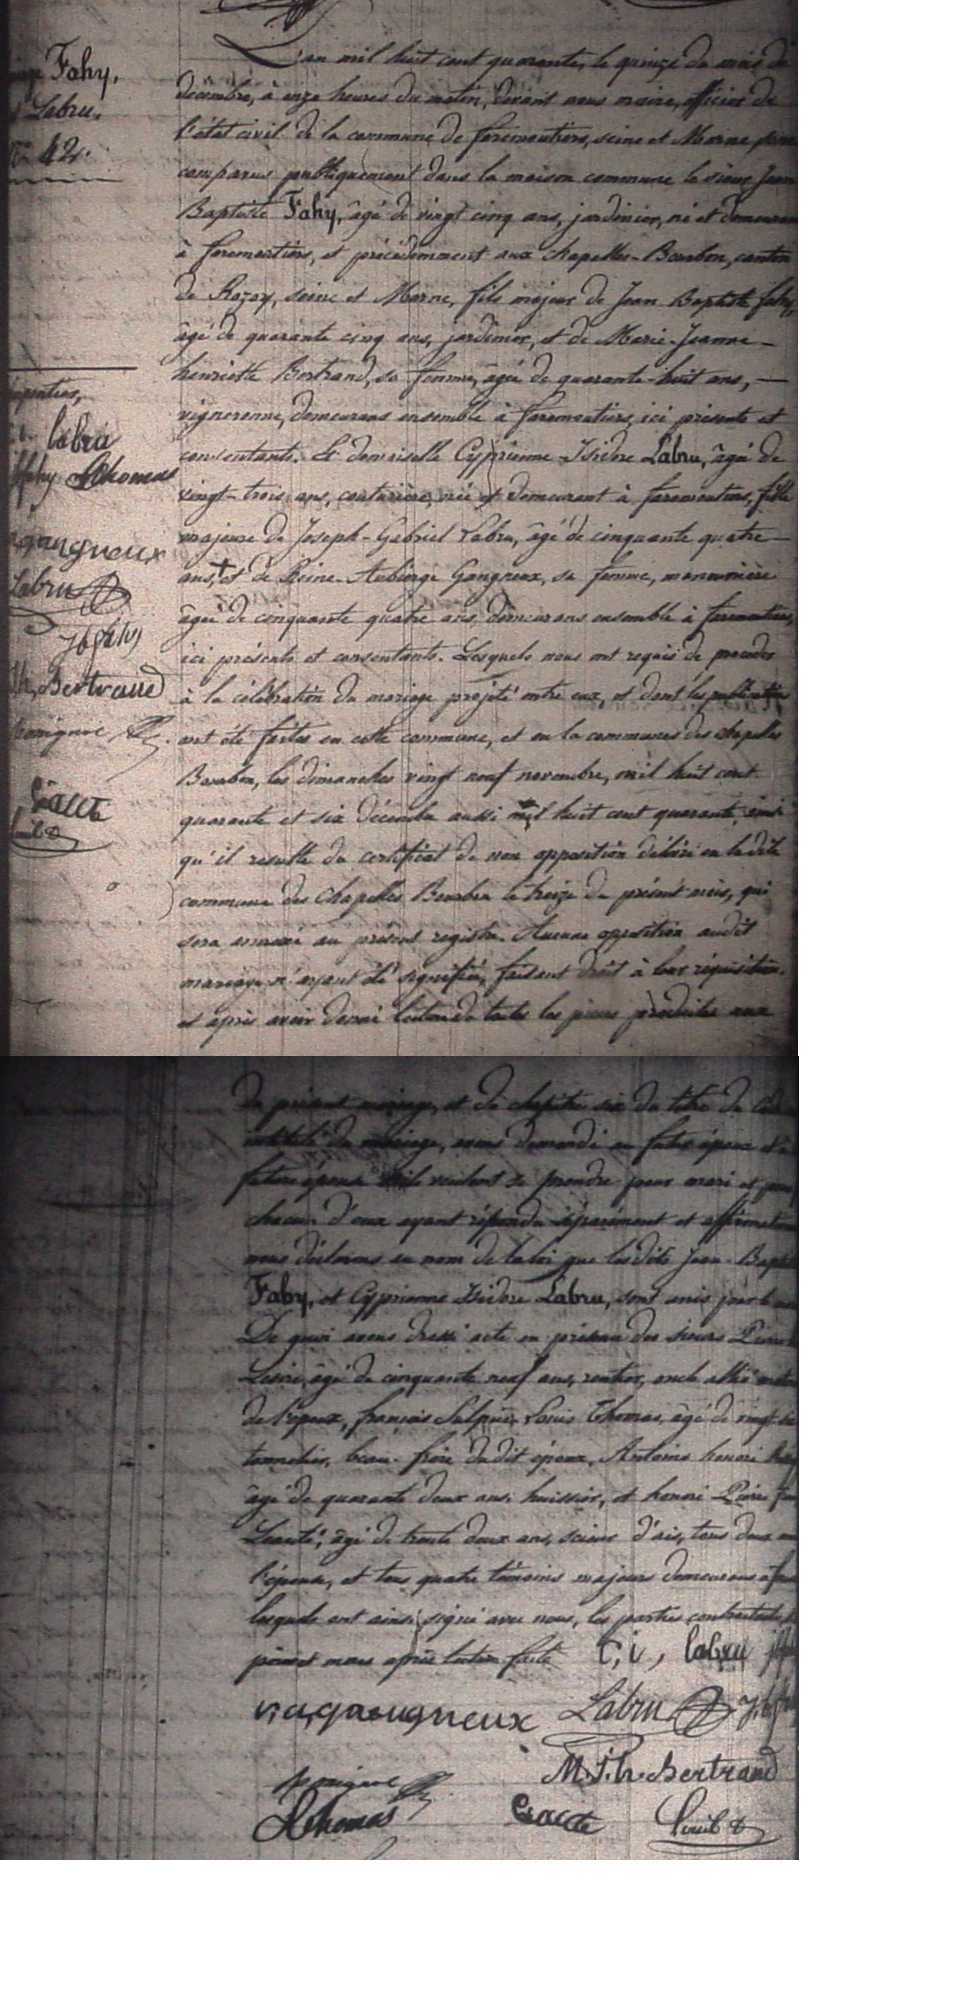 Fahy,
Labru.
N° 42.
L'an mil huit cent quarante, le quinze du mois de
décembre, à onze heures du matin, devant nous maire, officier de
l'état civil de la commune de faremoutiers, seine et Marne, sont
comparus publiquement dans la maison commune le sieur Jean
Baptiste Fahy, âgé de vingt cinq ans, jardinier, né et demeurant
à faremoutiers, et précédemment aux chapelles-Bourbon, canton
de Rozoy, seine et Marne, fils majeur de Jean Baptiste fahy,
âgé de quarante cinq ans, jardinier, et de Marie-Jeanne
henriette Bertrand, sa femme, âgée de quarante-huit ans,
vigneronne, demeurans ensemble à faremoutiers, ici présents et
consentants. Et demoiselle Cyprienne Isidore Labru, âgée de
vingt-trois ans, couturière, née et demeurant à faremoutiers, fille
majeure de Joseph-Gabriel Labru, âgé de cinquante quatre
ans, et de Reine-Aubierge Gangneux, sa femme,
âgée de cinquante quatre ans, demeurans ensemble à faremoutiers,
ici présents et consentants. Lesquels nous ont requis de procéder
à la célébration du mariage projeté entre eux, et dont les publications
ont été faites en cette commune, et en la commune des chapelles
Bourbon, les dimanches vingt neuf novembre, mil huit cent
quarante et six décembre aussi mil huit cent quarante, ainsi
qu'il resulte du certificat de non opposition délivré en la dite
commune des chapelles Bourbon le treize du présent mois, qui
sera annexé au présent registre. Aucune opposition audit
mariage n'ayant été signifiée, faisant droit à leur réquisition,
et après avoir donné lecture de toutes les pièces produites aux
labru
Thomas
gangneux
Labru
Jb fahy
Bertrand
du présent mariage, et du chapitre six du titre du code
intitulé du mariage, avons demandé au futur époux et à
future épouse s'ils veulent se prendre pour mari et pour
chacun d'eux ayant répondu séparément et affirmativement
nous déclarons au nom de la loi que lesdits Jean-Baptiste
Fahy, et Cyprienne Isidore Labru, sont unis par le
De quoi avons dressé acte en présence des sieurs Pierre
âgé de cinquante neuf ans, rentier, oncle allié
de l'époux, françois Sulpice Louis Thomas, âgé de vingt
tonnelier, beau-frère dudit époux, Antoine honoré
âgé de quarante deux ans, huissier, et honoré Pierre
âgé de trente deux ans, scieur d'ais, tous deux
l'épouse, et tous quatre témoins majeurs demeurans à
lesquels ont ainsi signé avec nous, les parties contractantes
après lecture faite c, i, labru
r, a, gangneux Labru
M. J. h. Bertrand
Thomas